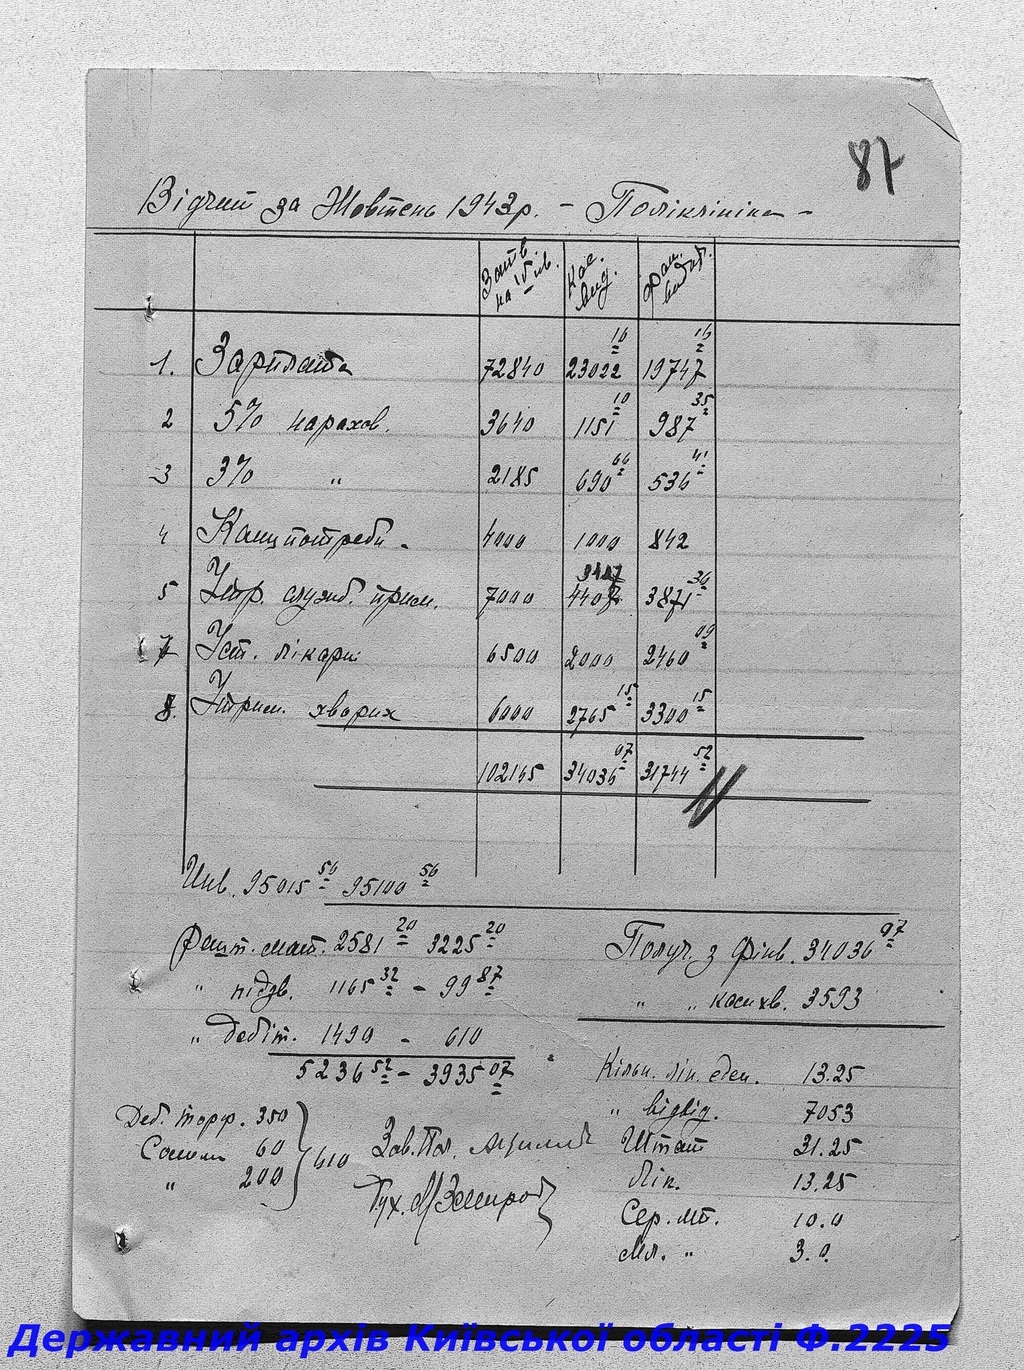 87
Відчит за Жовтень 1943р. - Поліклініка -
Затв. на IV кв. Кас. вид. Фак. видат.
1. Зарплата 72840 23022 16 19747 16
2 5% нарахов. 3640 1151 10 987 35
3 3% " 2185 690 66 536 41
4 Канцпотреби. 4000 1000 842
5 Утр. служб. прим. 7000 3407 4407 3871 36
7 Уст. лікарн. 6500 2000 2460 09
8. Утрим. хворих 6000 2765 15 3300 15
102165 34036 07 31744 52
Инв. 95015 50 95100 50
Решт. мат. 2581 20 3225 20
Получ. з Фінв. 34036 97
" підзв. 1165 32 - 99 87
" " касихв. 3593
" дебіт. 1490 - 610
5236 52 - 3935 07
Кільк. лік. един. 13.25
Деб. торф. 350
" відвід. 7053
Солома 60
610
Зав. Пол.
Штат 31.25
" 200
Лік. 13.25
Бух.
Сер. мп. 10.0
Мл. " 3.0.
Державний архів Київської області Ф.2225